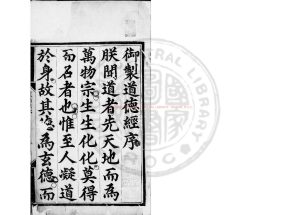 御製道德經序
朕聞道者先天地而為
萬物宗生生化化莫得
而名者也惟至人凝道
於身故其為玄德而